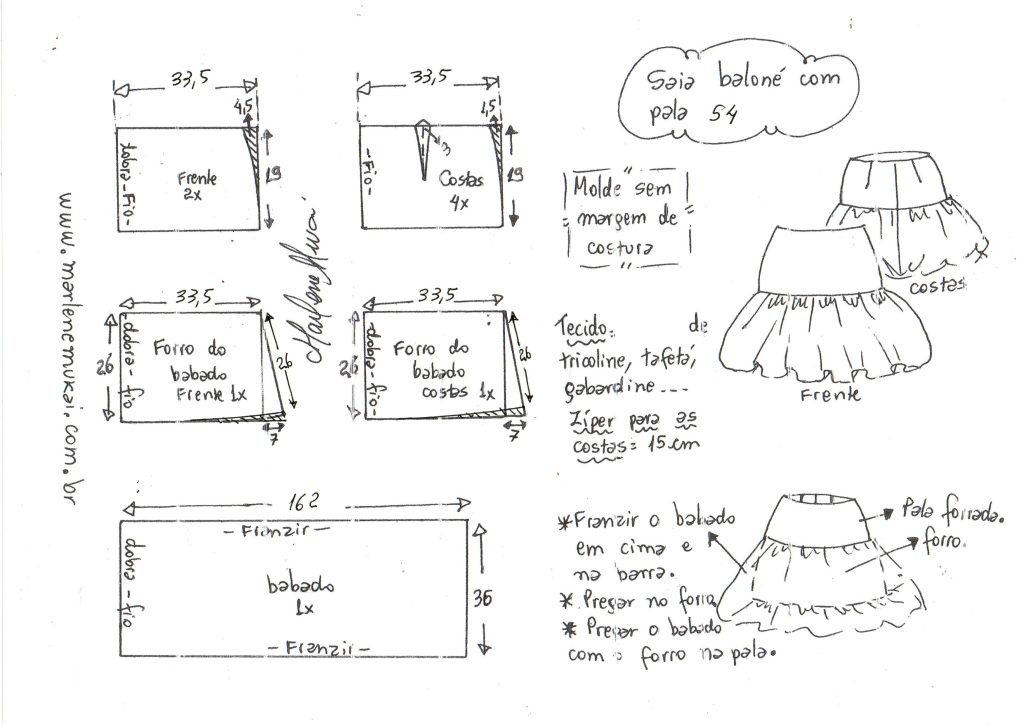 Saia baloné com
pala 54
33,5
4,5
dobra-fio-
Frente
2x
19
33,5
1,5
3
-Fio-
Costas
4x
19
Molde sem
margem de
costura
costas
Frente
www.marlenemukai.com.br
Marlene Mukai
33,5
26
-dobra-fio-
Forro do
babado
Frente 1x
26
7
33,5
26
-dobra-fio-
Forro do
babado
costas 1x
26
7
Tecido: de
tricoline, tafetá,
gabardine...
Zíper para as
costas= 15 cm
162
-Franzir-
dobra-fio
babado
1x
36
-Franzir-
*Franzir o babado
em cima e
na barra.
* Pregar no forro
* Pregar o babado
com o forro na pala.
Pala forrada.
forro.